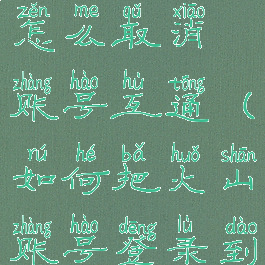 zěn me qǔ xiāo
怎么取消
zhàng hào hù tōng
账号互通（
rú hé bǎ huǒ shān
如何把火山
zhàng hào dēng lù dào
账号登录到